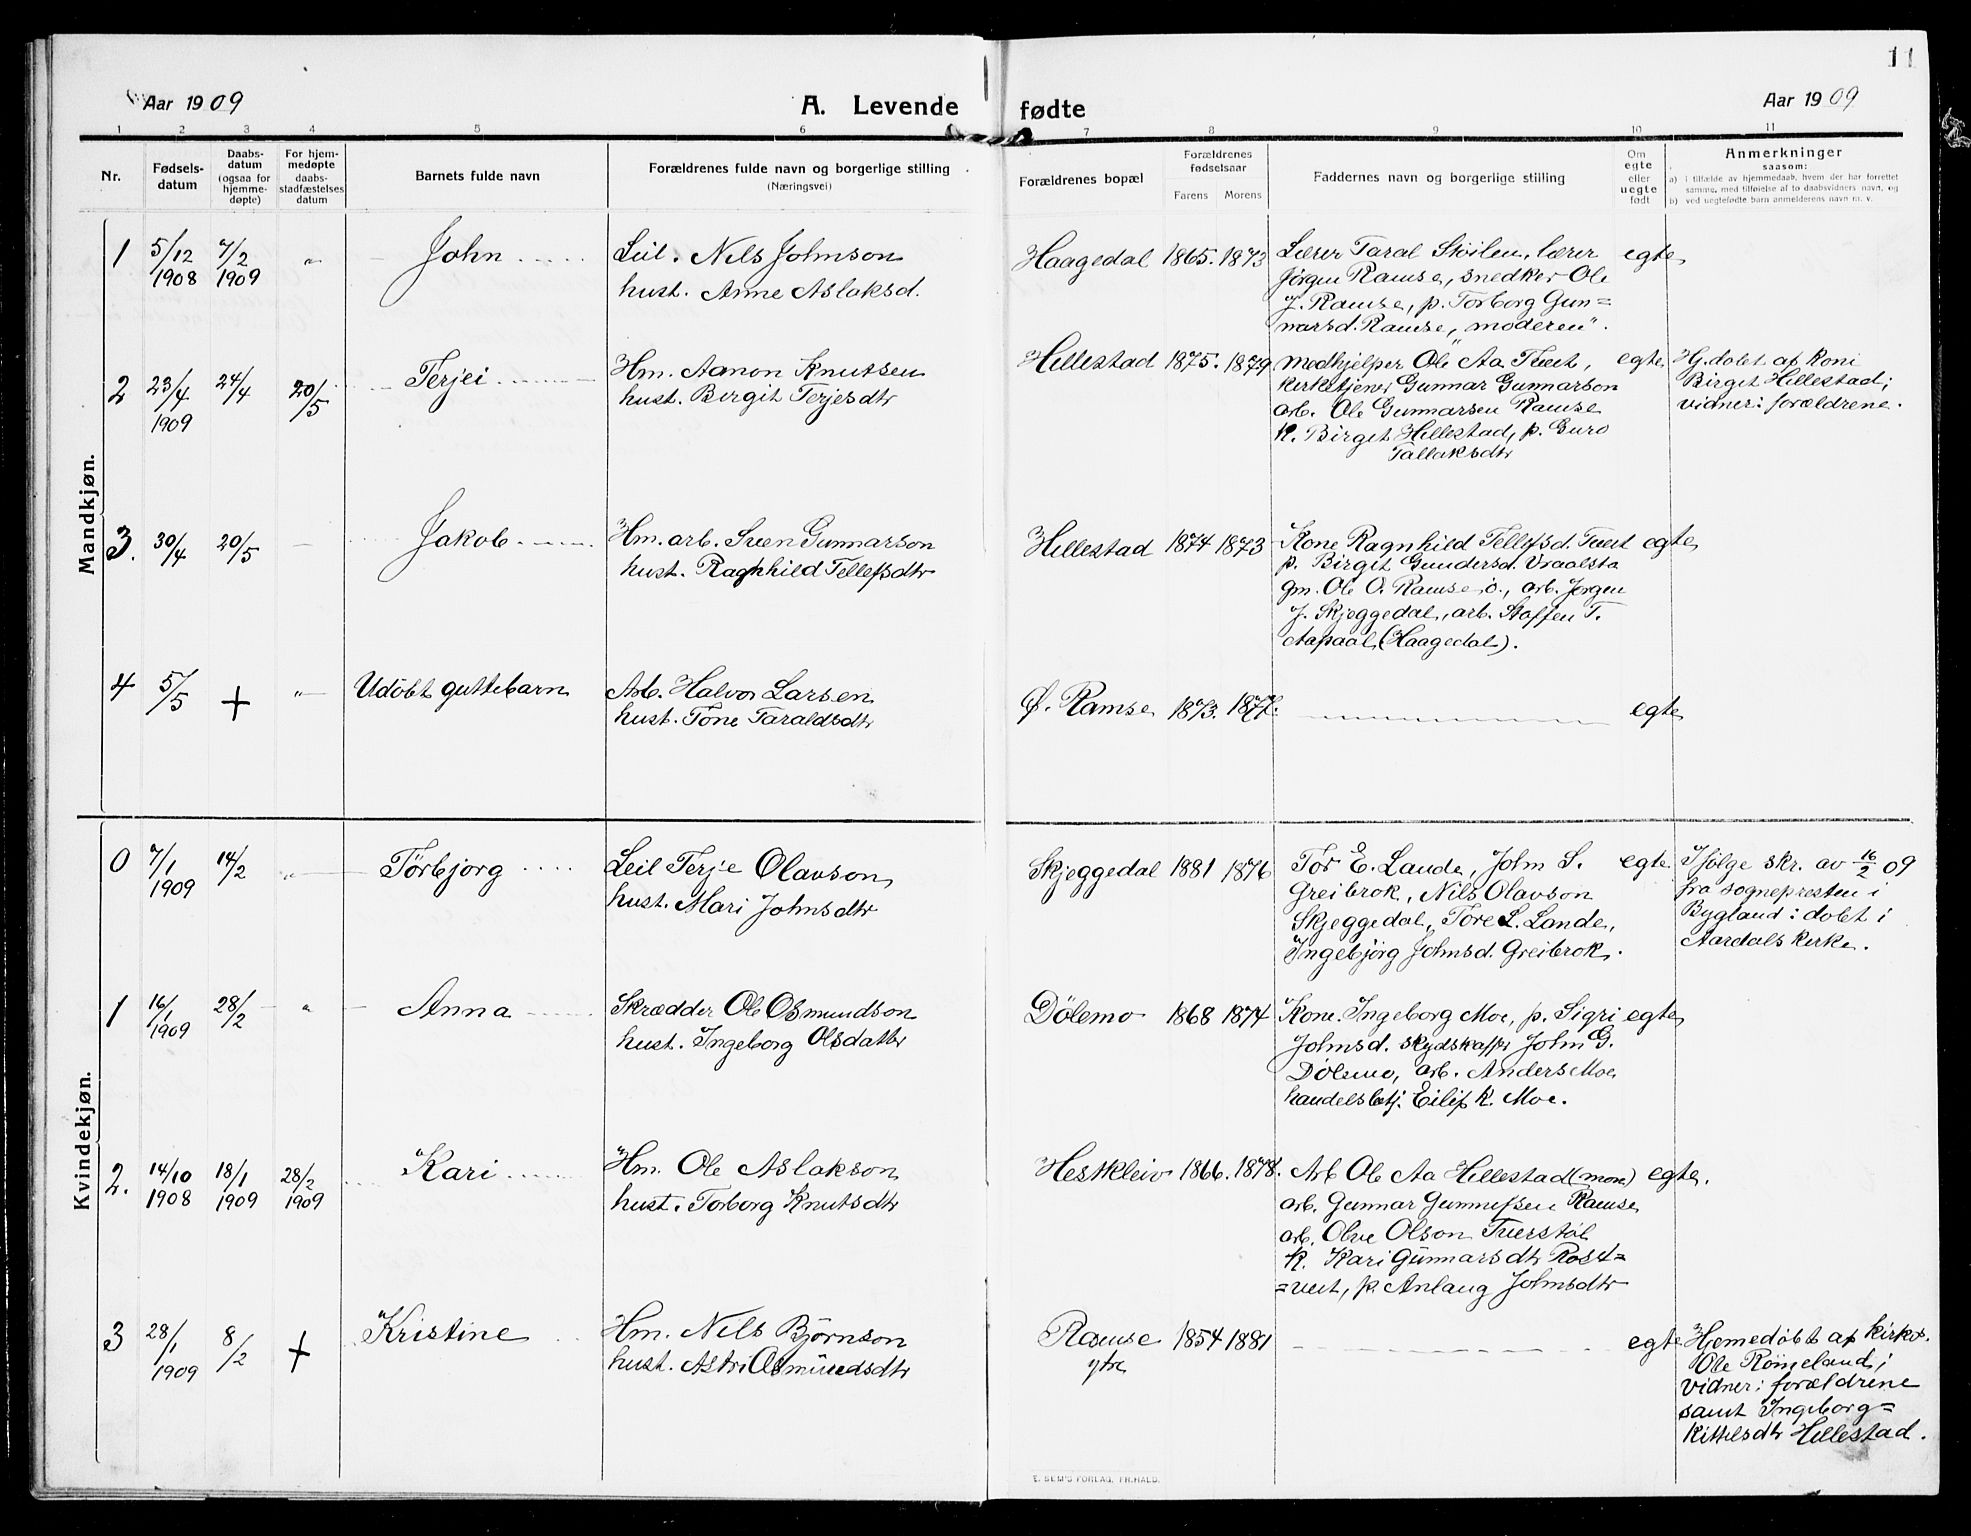 11
Aar 1909
A. Levende fødte
Aar 1909
1 2 3 4 5 6 7 8 9 10 11
Nr.
Fødsels-
datum
Daabs-
datum
(ogsaa for
hjemme-
døpte)
For hjem-
medøpte
daabs-
stadfæstelses
datum
Barnets fulde navn
Forældrenes fulde navn og borgerlige stilling
(Næringsvei)
Forældrenes bopæl
Forældrenes
fødselsaar
Farens Morens
Faddernes navn og borgerlige stilling
Om
egte
eller
uegte
født
Anmerkninger
saasom:
a) i tilfælde av hjemmedaab, hvem der har forrettet
samme, med tilføielse af to daabsvidners navn, og
b) ved uegtefødte barn anmelderens navn m. v.
Mandkjøn.
1 5/12 1908 7/2 1909 " John
Leil. Nels Johnson
hust. Anne Aslaksd.
Haagedal 1865. 1873
Lærer Taral Stöilen, lærer
Jørgen Ramse, snedker Ole
J. Ramse, p. Torborg Gun=
narsd. Ramse, "moderen".
egte
2 23/4 1909 24/4 20/5 Terjei
Hm. Aanon Knutsen
hust. Birgit Terjesdtr
Hillestad 1875. 1879
medhjelper Ole Aa Tveit,
kirketjener Gunnar Gunnarson
arb. Ole Gunnarsen Ramse
K. Birget Hillestad, p. Guro
Tallaksdtr
egte
Hj.döbt af koni
Birget Hillestad;
vidner: forældrene.
3. 30/4 20/5 Jakob
Hm. arb. Sven Gunnarson
hust. Ragnhild Tellefsdtr
Hillestad 1874 1873
Kone Ragnhild Tellefsd. Tveit
p. Birgit Gundersd. Vraalsta
gm. Ole O. Ramse, ö., arb. Jørgen
J. Skjeggedal, arb. Staffen T.
Aapaal (Haagedal).
egte
4 5/5 + " Udöbt guttebarn
Arb. Halvor Larsen
hust. Tone Taraldsdtr
Ø. Ramse 1873. 1877.
egte
Kvindekjøn.
0 7/1 1909 14/2 " Törbjorg
Leil Terje Olavson
hust. Mari Johnsdtr
Skjeggedal 1881 1876
Tor E. Lande, John S.
Greibrok, Nils Olavson
Skjeggedal, Tore L. Lande,
Ingebjörg Johnsd. Greibrok.
egte
Ifölge skr. av 16/2 09
fra sognepresten i
Bygland: döbt i
Aardals kirke.
1 16/1 1909 28/2 " Anna
Skrædder Ole Osmundson
hust. Ingeborg Olsdatter
Dölemo 1868 1874
Kone. Ingeborg Moe, p. Sigri
Johnsd. skydskaffr John G.
Dölemo, arb. Anders Moe
handelsbetj. Eilif K. Moe.
egte
2. 14/10 1908 18/1 1909 28/2 1909 Kari
Hm. Ole Aslakson
hust. Torborg Knutsdtr
Hestkleiv 1866. 1878.
Arb Ole Aa Hillestad (mora)
arb. Gunnar Gunnufsen Ramse
arb. Olve Olson Tverstöl
K. Kari Gunnarsdtr Rost=
=veit, p. Anlaug Johnsdtr
egte.
3 28/1 1909 8/2 + Kristine
Hm. Nils Björnson
hust. Astri Osmundsdtr
Ramse
ytre
1854 1881
egte
Hjemedöbt af kirkes.
Ole Römeland;
vidner: forældrene
samt Ingeborg=
Kittelsdtr Hillestad.
E. SEM'S FORLAG, FR.HALD.